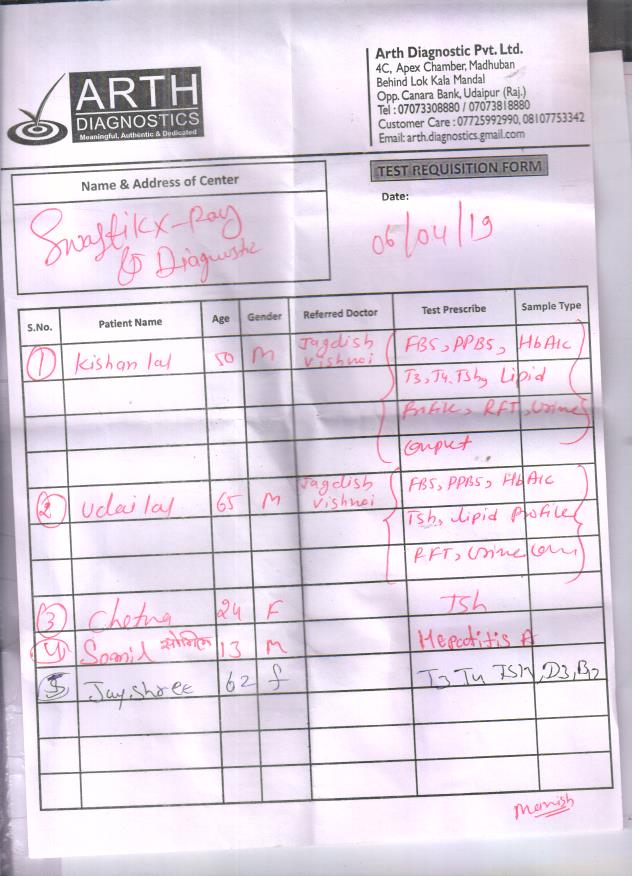 ARTH
DIAGNOSTICS
Meaningful, Authentic & Dedicated
Arth Diagnostic Pvt. Ltd.
4C, Apex Chamber, Madhuban
Behind Lok Kala Mandal
Opp. Canara Bank, Udaipur (Raj.)
Tel : 07073308880 / 07073818880
Customer Care : 07725992990, 08107753342
Email: arth.diagnostics.gmail.com
TEST REQUISITION FORM
Name & Address of Center
Swastik X-Ray
& Diagnostic
Date:
06/04/19
S.No. Patient Name Age Gender Referred Doctor Test Prescribe Sample Type
1 Kishan lal 50 M Jagdish Vishnoi FBS, PPBS, HbA1c
T3, T4, Tsh, Lipid
Profile, RFT, Urine
Complet
2 Udai lal 65 M Jagdish Vishnoi FBS, PPBS, HbA1c
Tsh, Lipid Profile
RFT, Urine Com
3 Chetna 24 F Tsh
4 Somil सोमिल 13 M Hepatitis A
5 Jayshree 62 f T3 T4 TSH, D3, B12
Manish